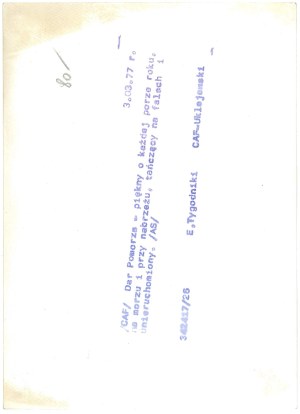 /CAF/ Dar Pomorza - piękny o każdej porze roku,
na morzu i przy nabrzeżu, tańczący na falach i
unieruchomiony. /AS/
3.03.77 r.
E.Tygodniki
CAF-Uklejewski
342417/26
80